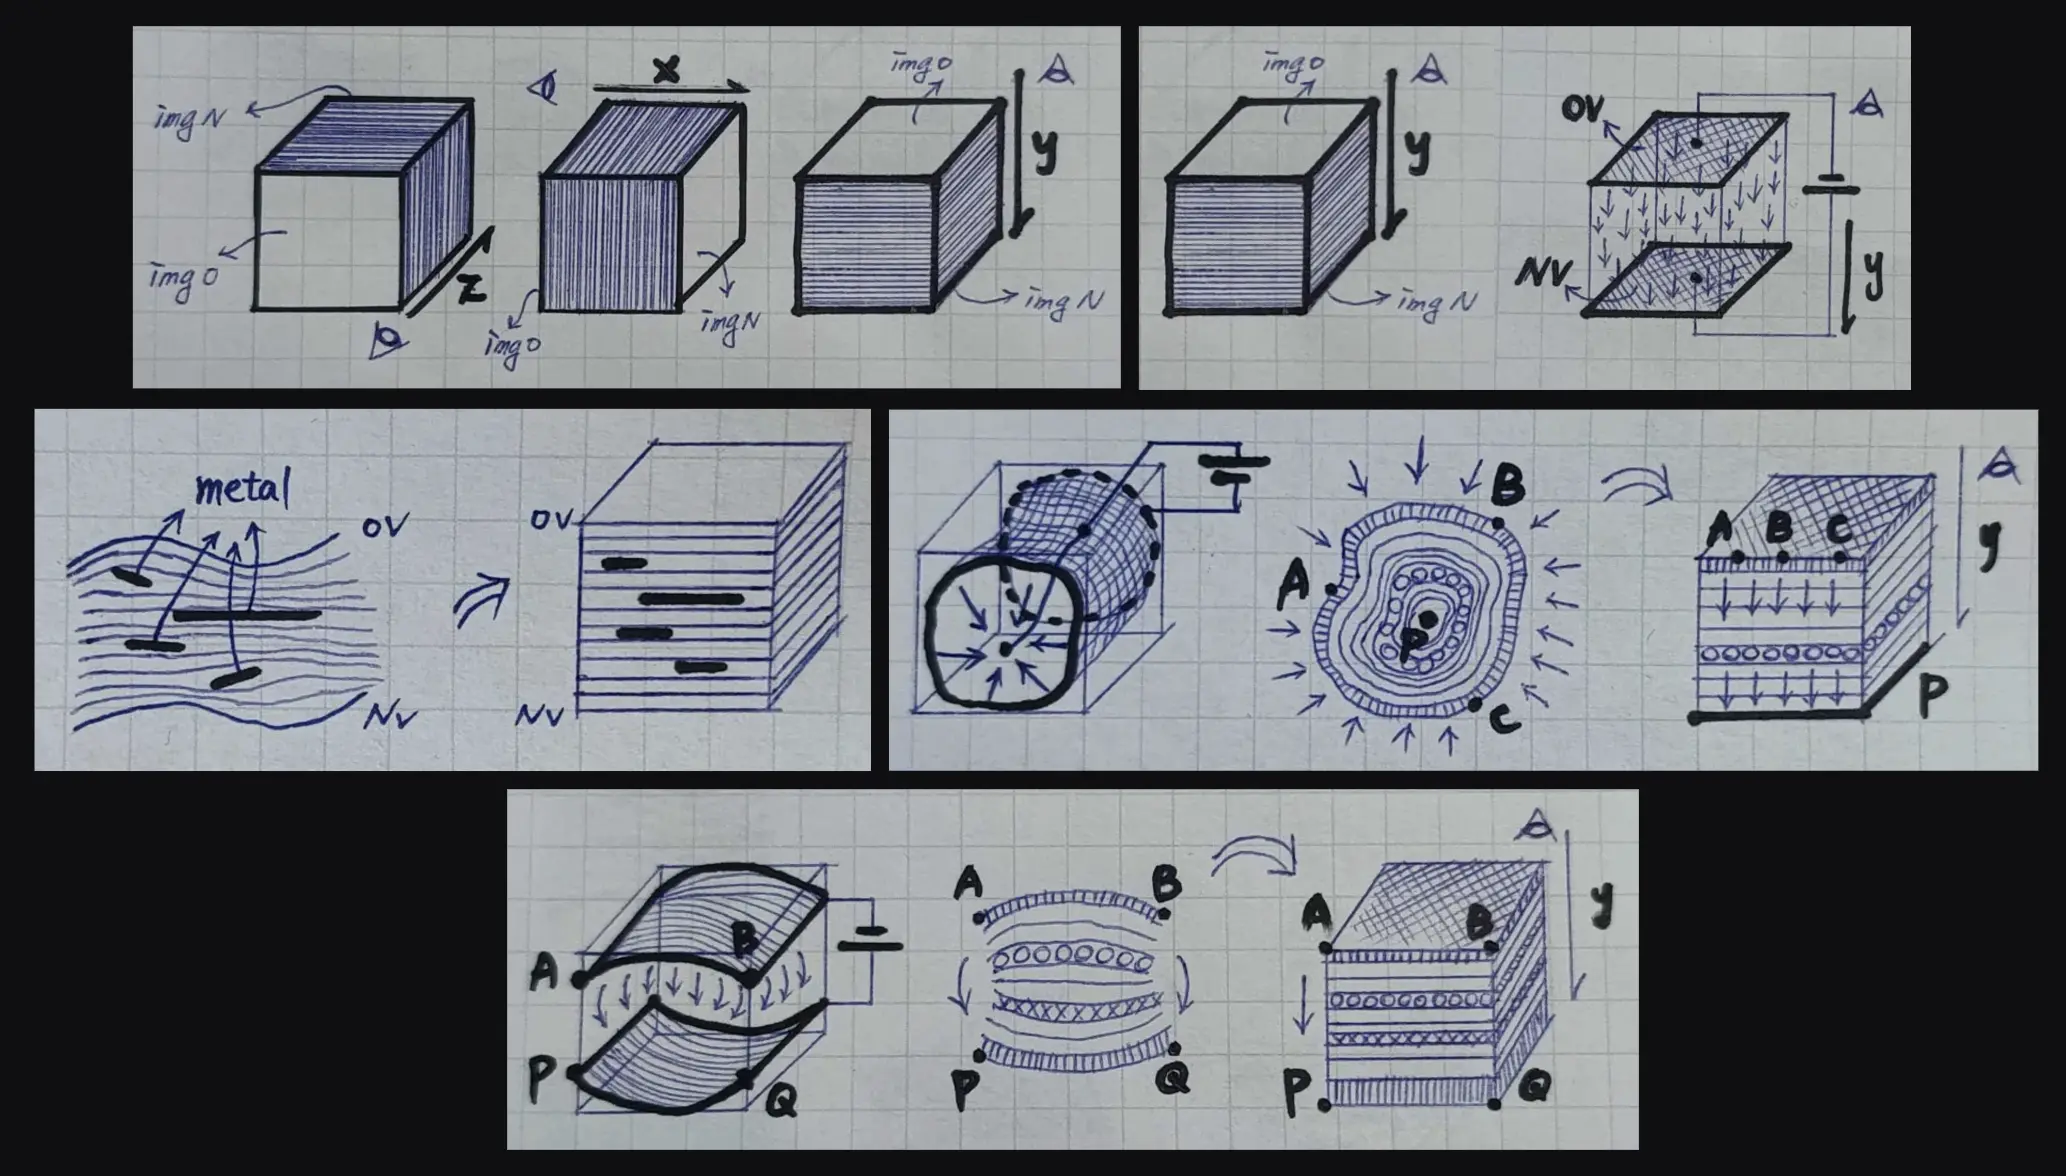 img N
img 0
z
x
img 0
img N
img 0
y
img N
img 0
y
img N
0V
NV
y
metal
0V
NV
0V
NV
A
B
P
C
A B C
y
P
A
B
P
Q
A
B
P
Q
A
B
P
Q
y